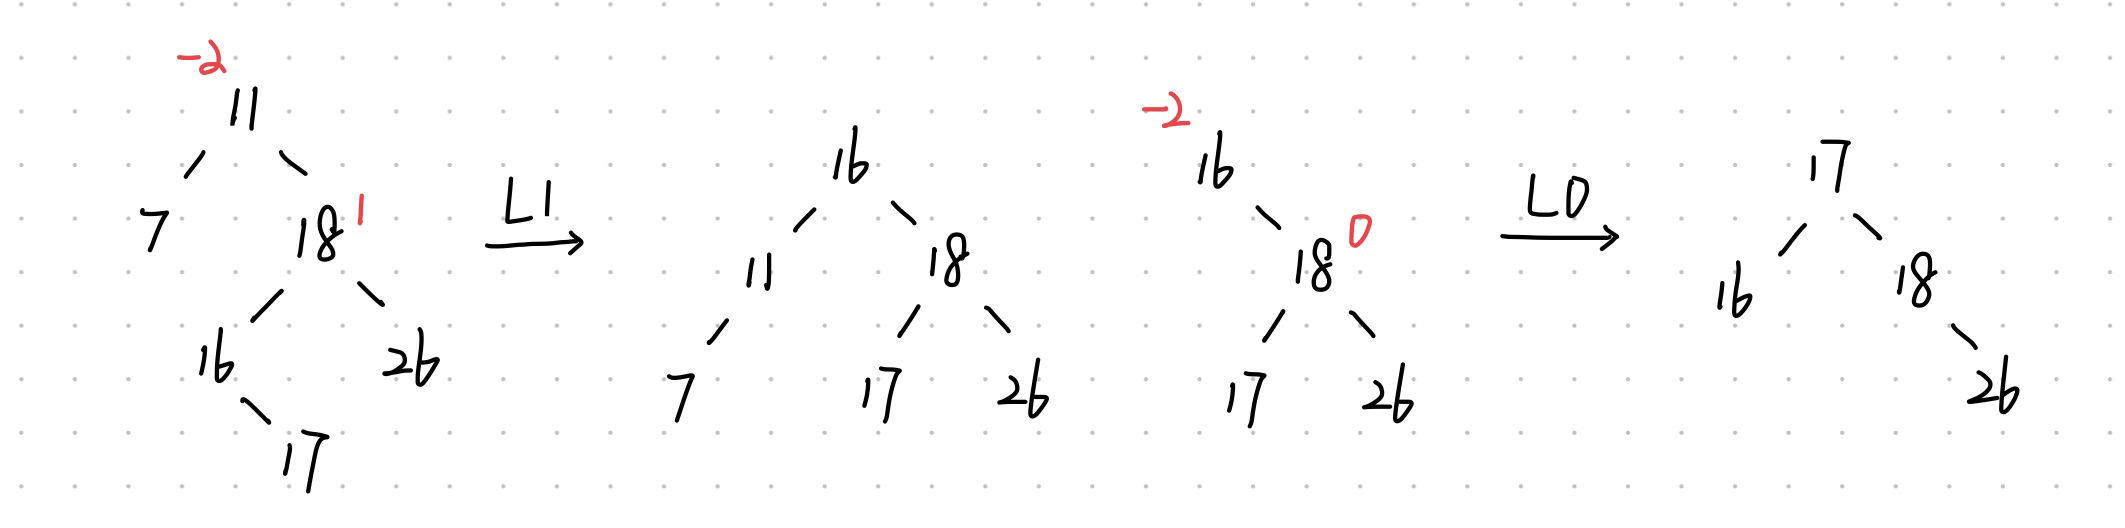 -2
11
7 18 1
16 26
17
L1
16
11 18
7 17 26
-2
16
18 0
17 26
L0
17
16 18
26